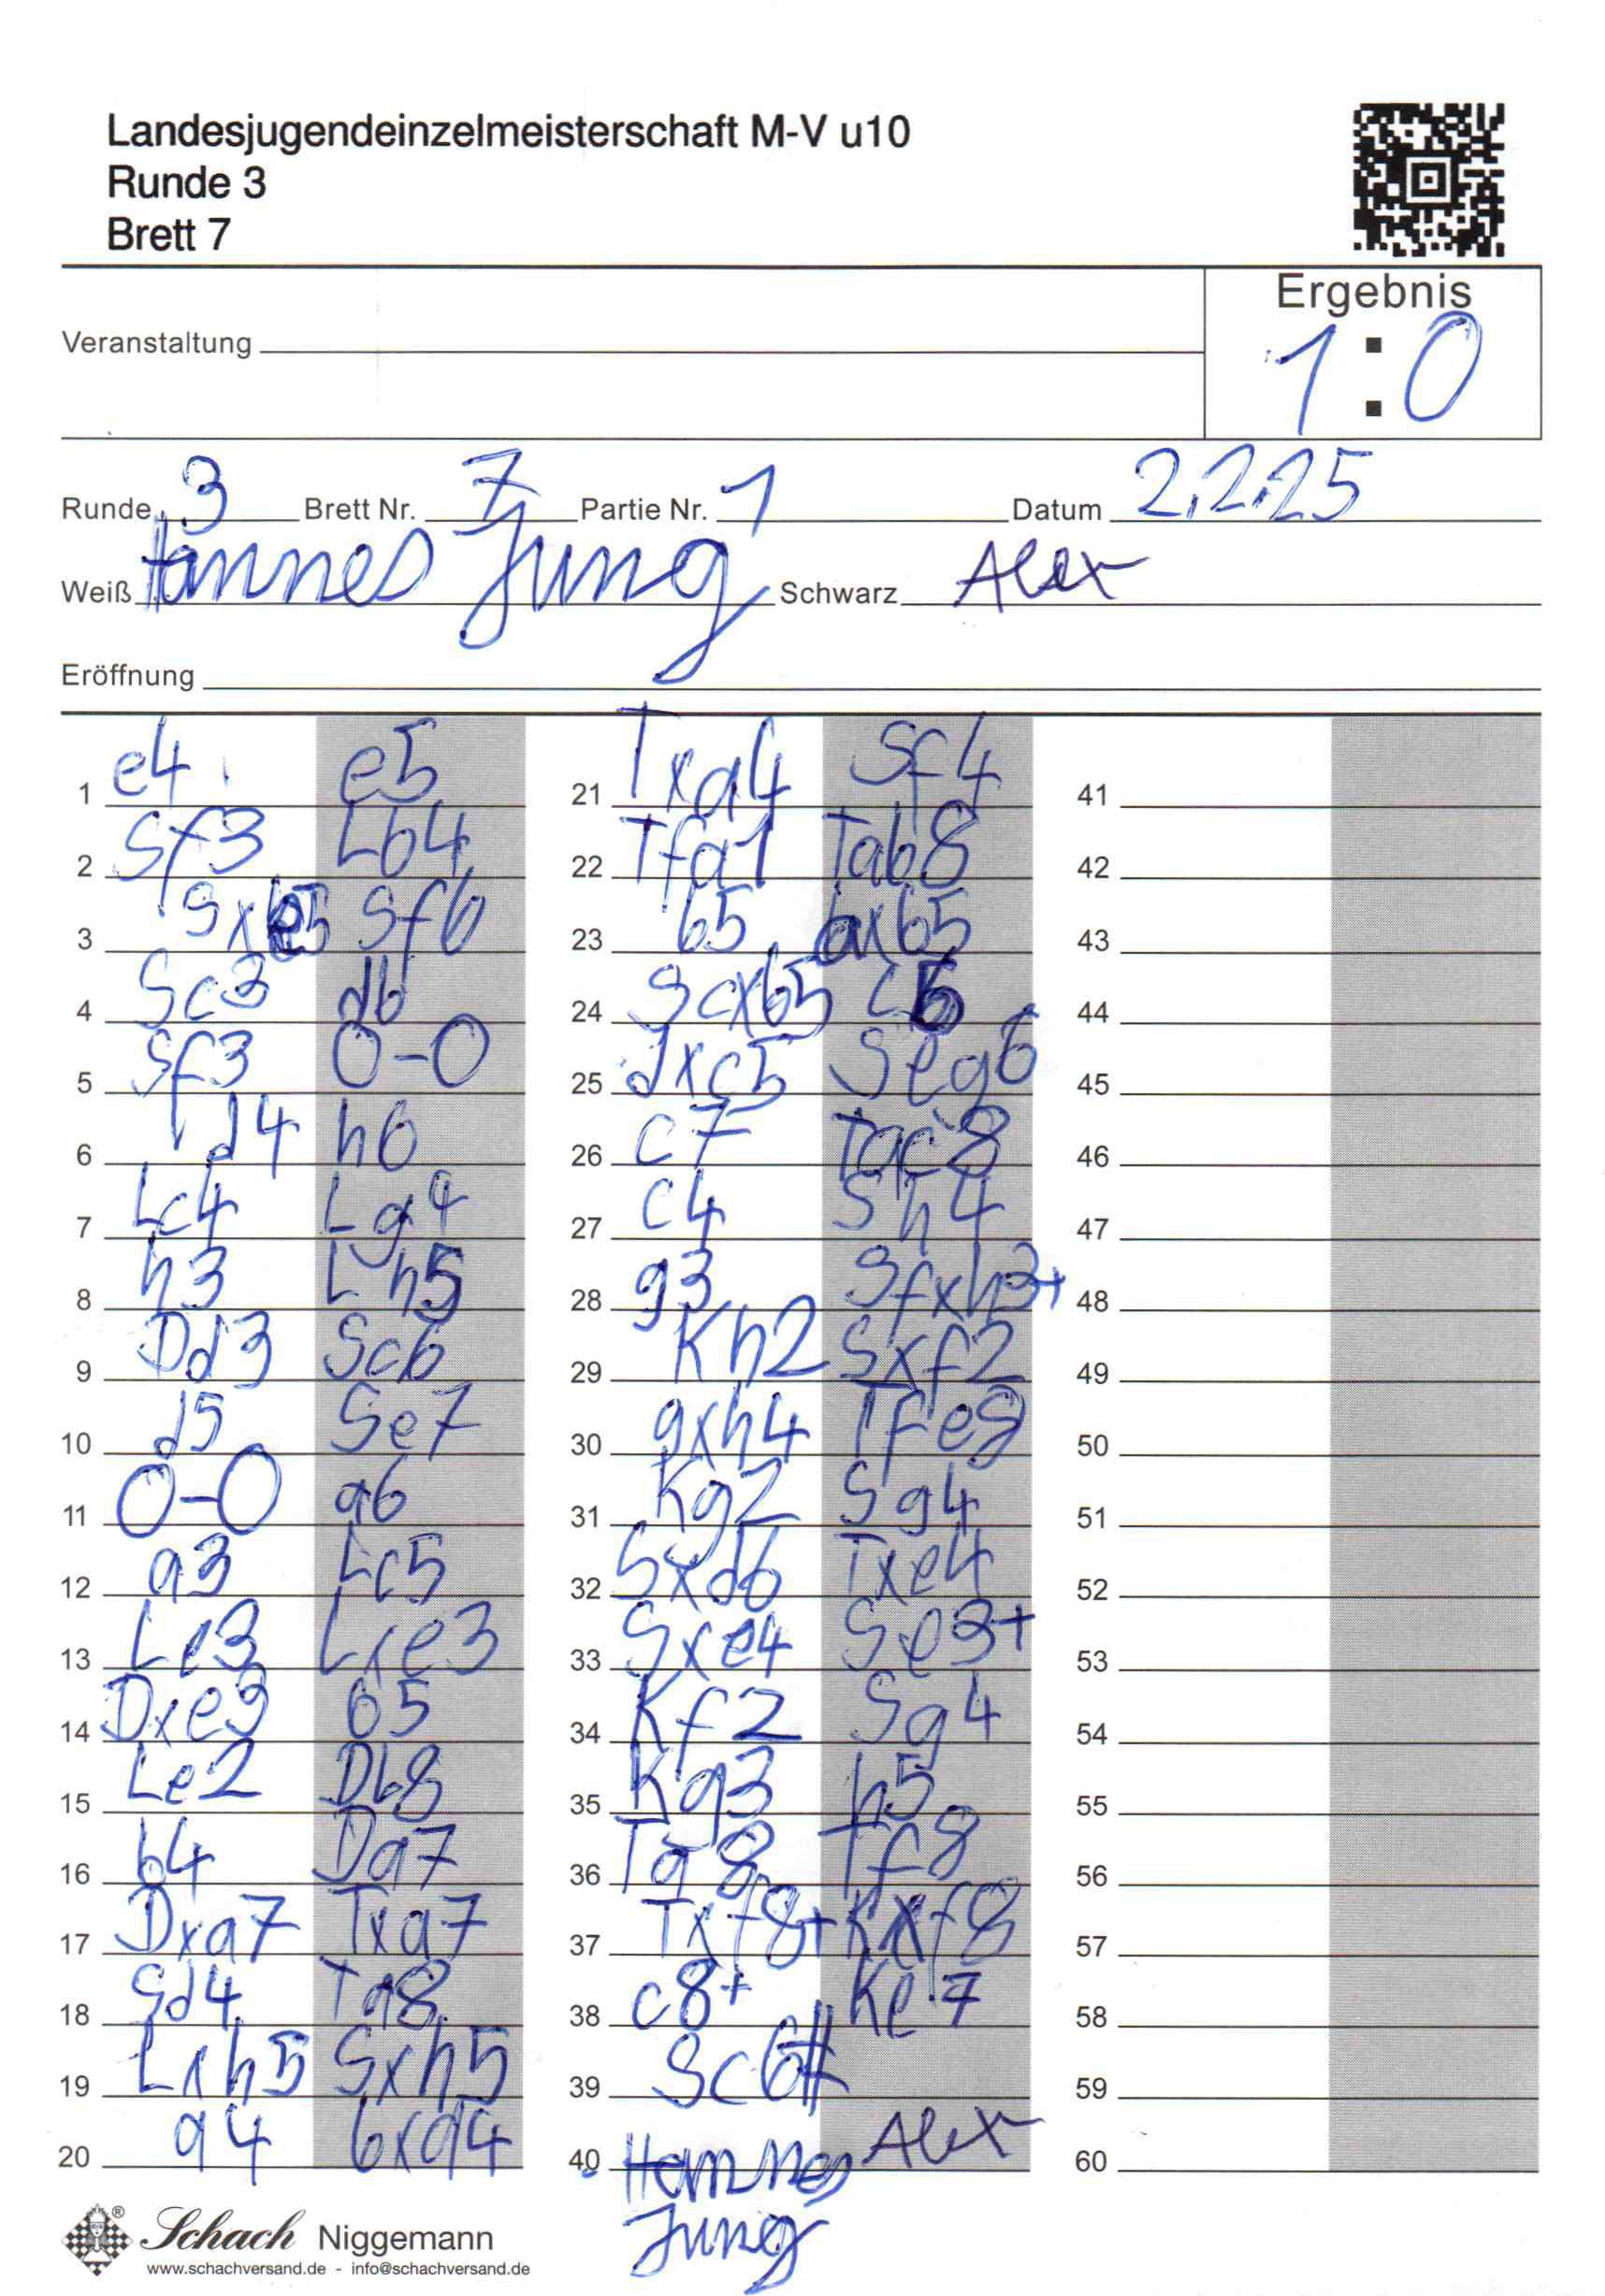 Landesjugendeinzelmeisterschaft M-V u10
Runde 3
Brett 7
Ergebnis
Veranstaltung
1 : 0
Runde 3 Brett Nr. 7 Partie Nr. 1 Datum 2.2.25
Weiß Hannes Jung Schwarz Alex
Eröffnung
1 e4 e5
2 Sf3 Lb4
3 Sxe5 Sf6
4 Sc3 d6
5 Sf3 0-0
6 d4 h6
7 Lc4 Lg4
8 h3 Lh5
9 Dd3 Sc6
10 d5 Se7
11 0-0 a6
12 a3 Lc5
13 Le3 Lxe3
14 Dxe3 b5
15 Le2 Db8
16 b4 Da7
17 Dxa7 Txa7
18 Sd4 Ta8
19 Lxh5 Sxh5
20 a4 bxa4
21 Txa4 Sf4
22 Tfa1 Tab8
23 b5 axb5
24 Scxb5 c5
25 dxc5 Seg6
26 c7 Tac8
27 c4 Sh4
28 g3 Sfxh3+
29 Kh2 Sxf2
30 gxh4 Tfe8
31 Kg2 Sg4
32 Sxd6 Txe4
33 Sxe4 Se3+
34 Kf2 Sg4
35 Kg3 h5
36 Ta8 Tf8
37 Txf8+ Kxf8
38 c8+ Ke7
39 Sc6#
40 Hannes Jung Alex
41
42
43
44
45
46
47
48
49
50
51
52
53
54
55
56
57
58
59
60
Schach Niggemann
www.schachversand.de - info@schachversand.de